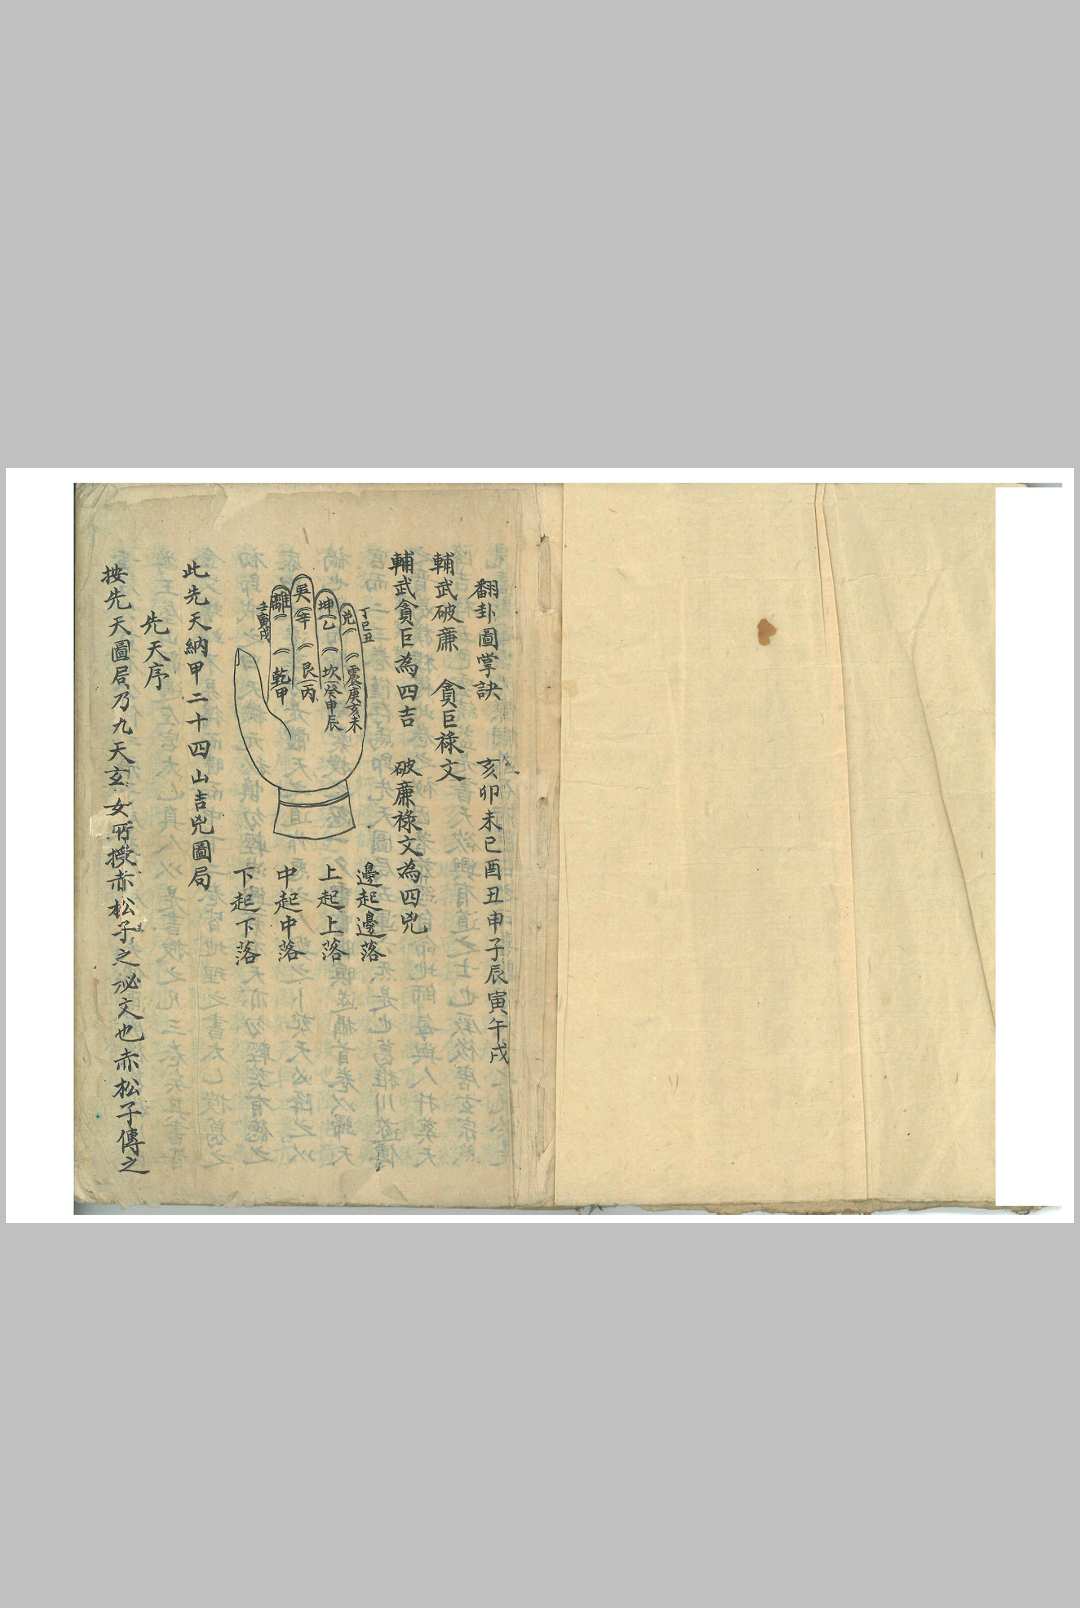 翻卦圖掌訣　亥卯未巳酉丑申子辰寅午戌
輔武破廉　貪巨祿文
輔武貪巨為四吉　破廉祿文為四兇
丁巳丑
兌
震庚亥未
坤乙
坎癸申辰
辛
艮丙
離
乾甲
壬寅戌
邊起邊落
上起上落
中起中落
下起下落
此先天納甲二十四山吉兇圖局
先天序
按先天圖局乃九天玄女所授赤松子之祕文也赤松子傳之